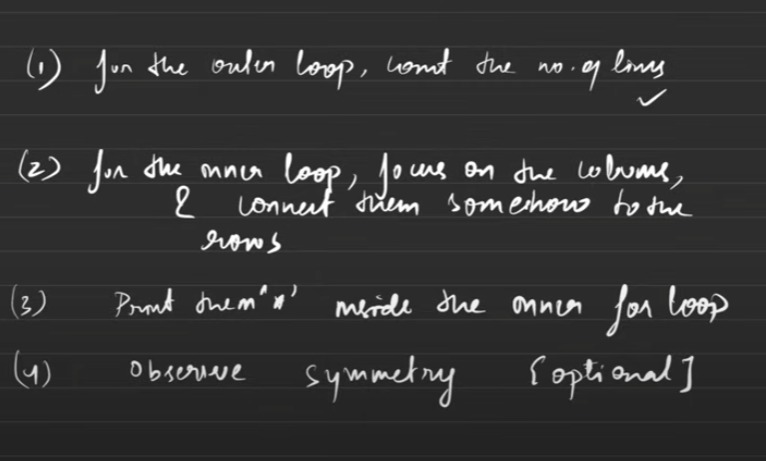 (1) for the outer loop, count the no. of lines
(2) for the inner loop, focus on the columns,
& connect them somehow to the
rows
(3) Print them '*' inside the inner for loop
(4) Observe symmetry [optional]